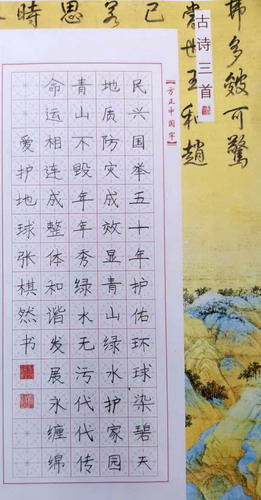 多皴可驚
世王和趙
已
思
時
古诗三首
【方正中国字】
民兴国举五十年护佑环球染碧天
地质防灾成效显青山绿水护家园
青山不毁年年秀绿水无污代代传
命运相连成整体和谐发展永缠绵
爱护地球张棋然书